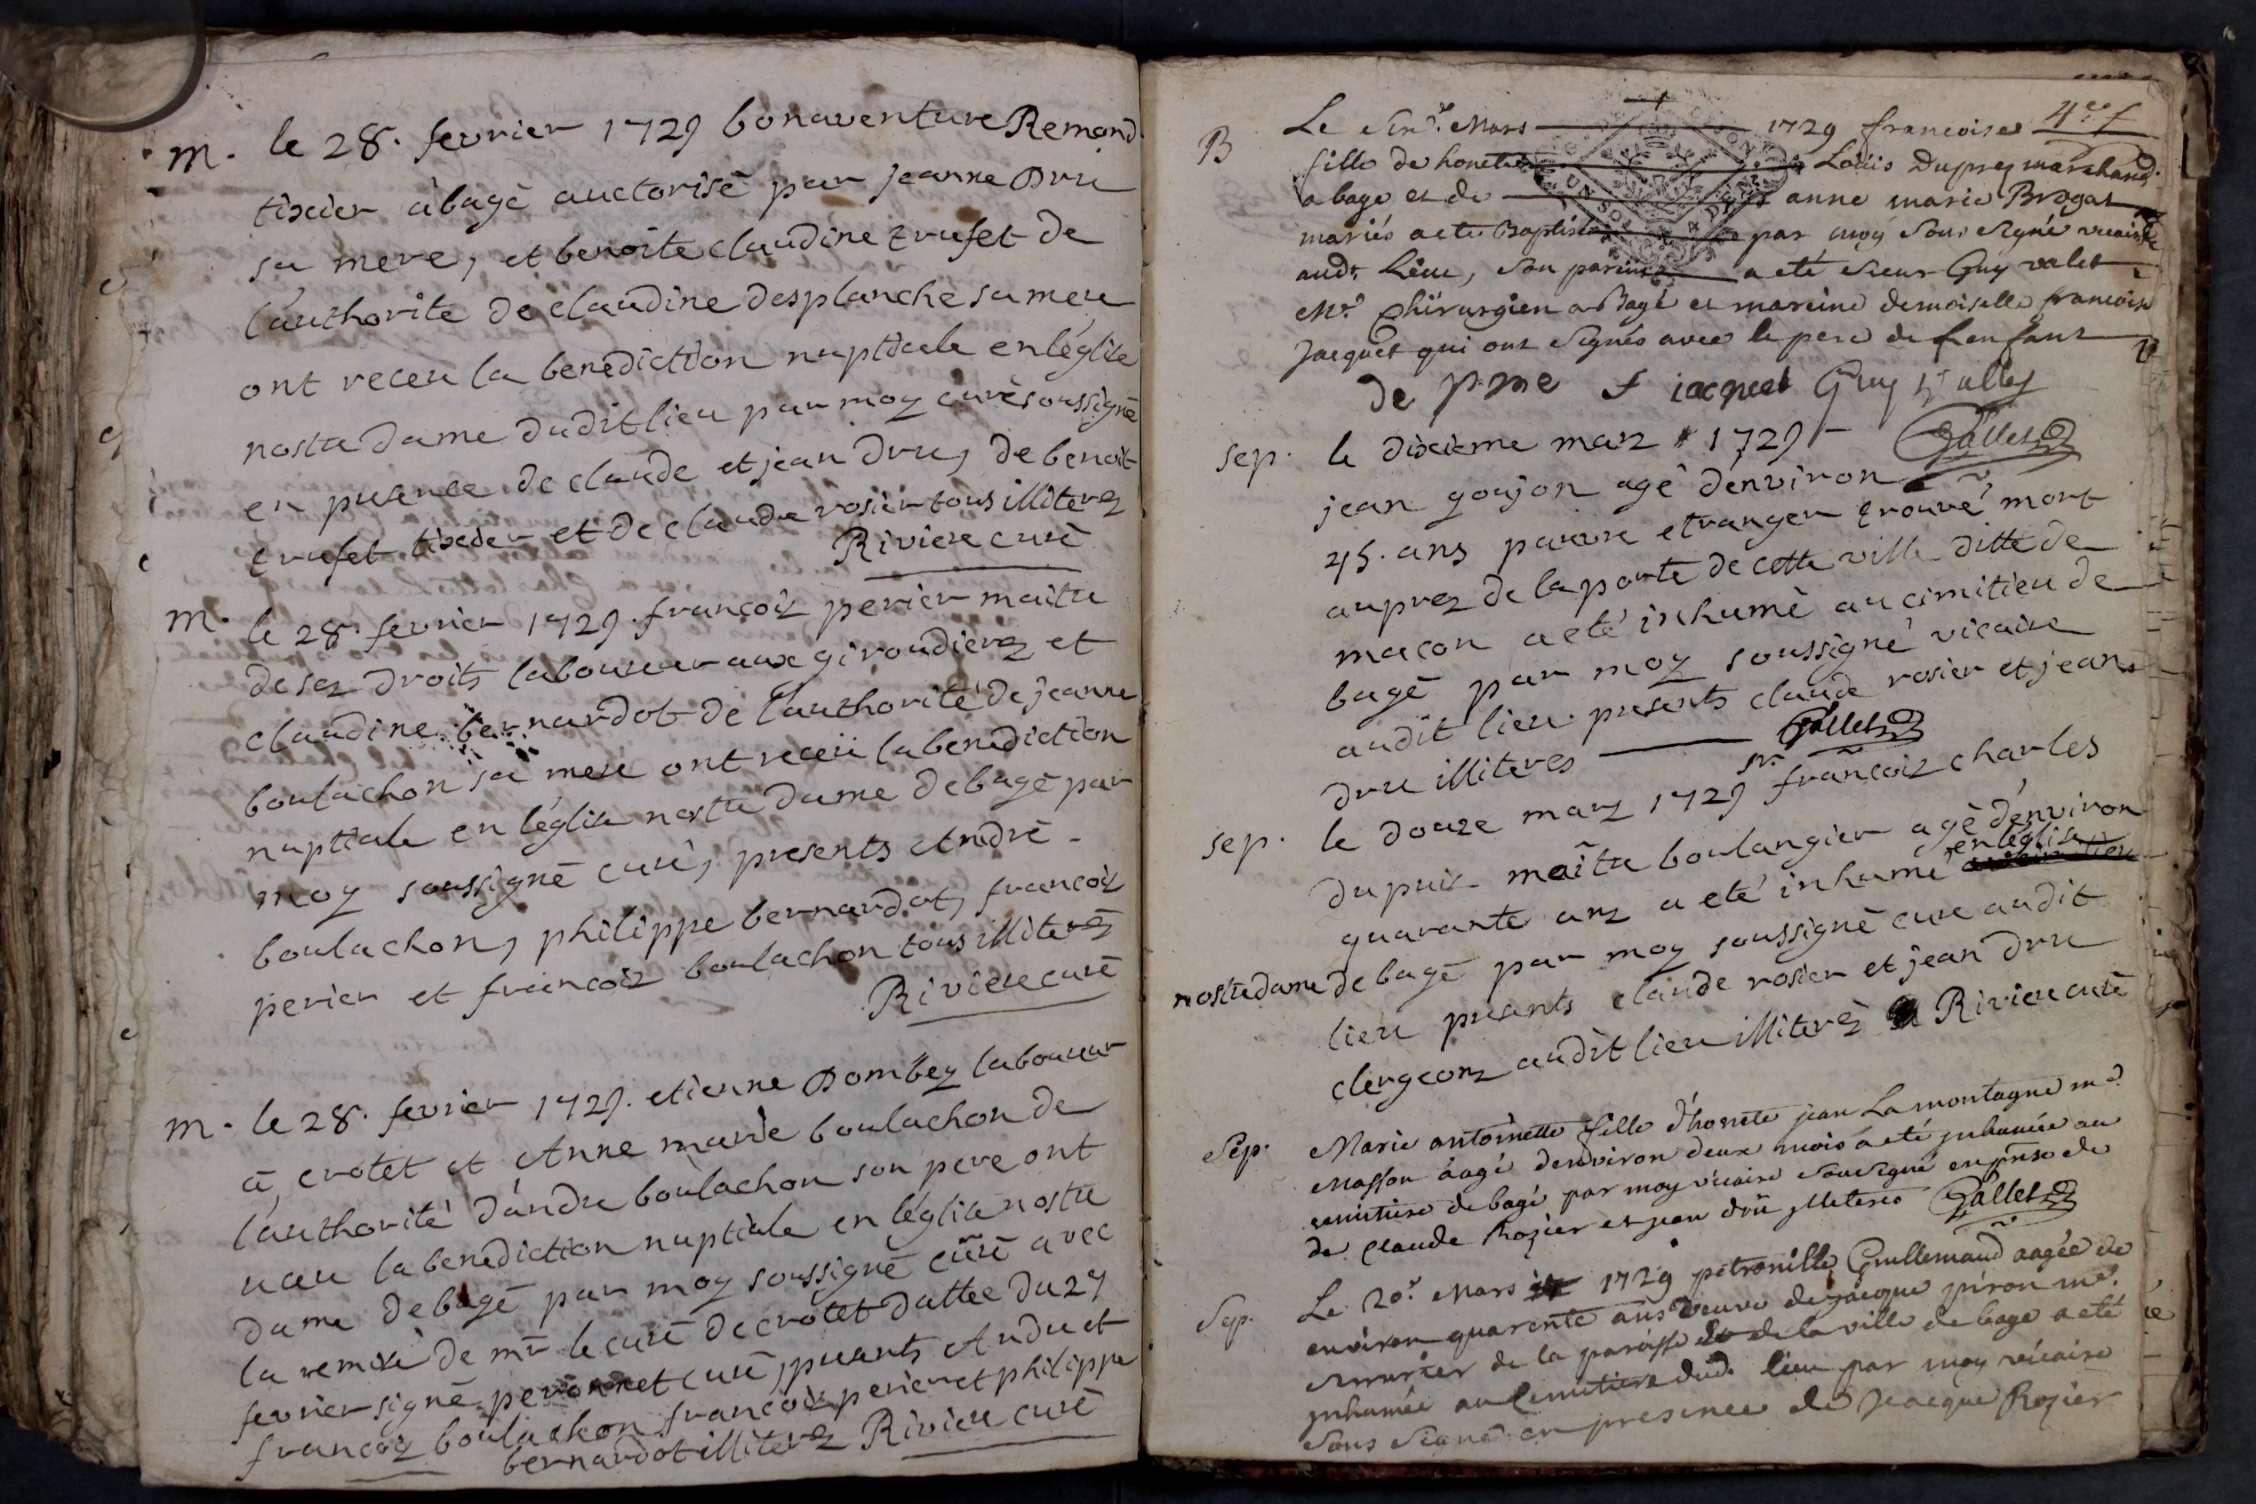 m. le 28. fevrier 1729 bonaventure Remond
tixier à bagé auctorisé par jeanne Dru
sa mere, et benoite claudine trufet de
l'authorite de claudine desplanche sa mere
ont receu la benediction nuptiale en l'église
nostre dame dudit lieu par moy curé soussigné
en presence de claude et jean dru, de benoit
trufet tixier et de claude rosier tous illiterez
Riviere curé
m. le 28. fevrier 1729. françois perier maitre
de ses droits laboureur aux giroudierez et
claudine bernardot de l'authorité de jeanne
boulachon sa mere ont receü la benediction
nuptiale en l'église nostre dame de bagé par
moy soussigné curé, presents André
boulachon, philippe bernardot, françois
perier et françois boulachon tous illiterez
Riviere curé
m. le 28. fevrier 1729. etienne Dombey laboureur
à crotet et Anne marie boulachon de
l'authorité d'andre boulachon son pere ont
receu la benediction nuptiale en l'église nostre
dame de bagé par moy soussigné curé avec
la remise de mr le curé de crotet dattée du 27
fevrier signé peronnet curé, presents Andre et
françois boulachon françois perier et philippe
bernardot illiterez Riviere curé
4e f
B Le Mars 1729 francoise
fille de honete Loüis Duprey marchand
a bage et de anne marie Brogat
mariés a ete Baptisée par moy sous signé vicaire
aud. lieu, son parein a eté sieur Guy valet
Mr. Chirurgien a Bagé et mareine demoiselle francoise
Jacquet qui ont signés avec le pere de l'enfant
f iacquet Guy
Gallet
sep. le dixieme marz 1729
jean goujon agé d'environ
45. ans pauvre etranger trouvé mort
auprez de la porte de cette ville ditte de
macon a eté inhumé au cimitieu de
bagé par moy soussigné vicaire
audit lieu presents claude rosier et jean
dru illiteres Gallet
sep. le douze marz 1729 sr. françois charles
dupuis maitre boulangier agé d'environ
quarante anz a eté inhumé en l'église
nostre dame de bagé par moy soussigné curé audit
lieu presents claude rosier et jean dru
clergeonz audit lieu illiterez Riviere curé
Sep. Marie antoinette fille d'honete jean La montagne md.
masson aagé denviron deux mois a eté inhumée au
cemitiere de bagé par moy vicaire sousigné en prnse de
de Claude Rozier et jean drü illeteres Gallet
Sep. Le 20e. Mars 1729 petronille Guillemaud aagée de
environ quarente ans veuve de jacque piron me.
de la paroisse de la ville de bage a eté
inhumée au Cemitiere dud. lieu par moy vicaire
sous signé en presence de Jacque Rozier